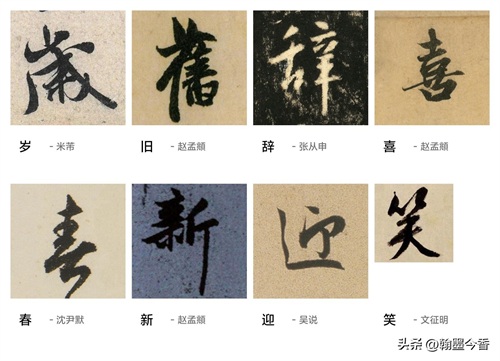 歲 舊 辞 喜
岁 - 米芾 旧 - 赵孟頫 辞 - 张从申 喜 - 赵孟頫
春 新 迎 笑
春 - 沈尹默 新 - 赵孟頫 迎 - 吴说 笑 - 文征明
头条 @翰墨今香